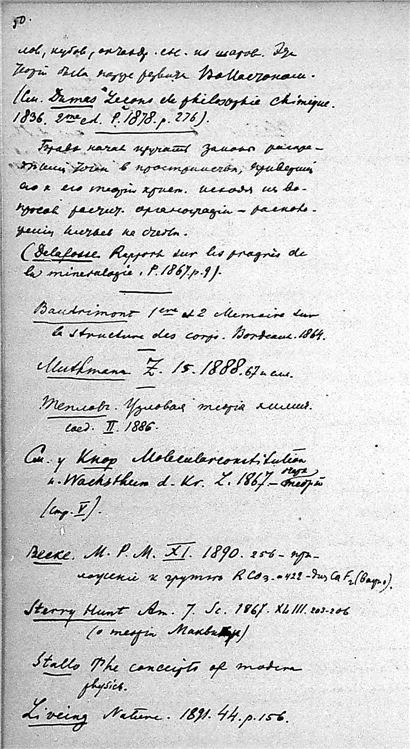 50.
лов, кубов, октаэдр. сис. из шаров. Эта
теорiя была позже развита Волластоном.
(См. Dumas "Leçons de philosophie chimique.
1836. 2me éd. P. 1878. p. 276).
Браве начал изучать законы распо-
ложенiя точек в пространстве,
его к его теорiи крист. исходя из во-
просов
листьев на стебле.
(Delafosse Rapport sur les progrès de
la mineralogie. P. 1867. p. 9).
Baudrimont 1ere et 2 Memoire sur
la structure des corps. Bordeaux. 1864.
Muthmann Z. 15. 1888. 67 и сл.
Теплов. Узловая теорiя химич.
соед. II. 1886.
См. у Knop Molecularconstitution
u. Wachsthum d. Kr. L. 1867 – теорiй
(стр. V).
Becke. M. P. M. XI. 1890. 256 – при-
ложенiе к группе RCO3. – 422 – для CaF2
Sterry Hunt Am. J. Sc. 1867. XLIII. 203-206
(о теорiи
Stallo The concepts of modern
physics.
Liveing Nature. 1891. 44. p. 156.